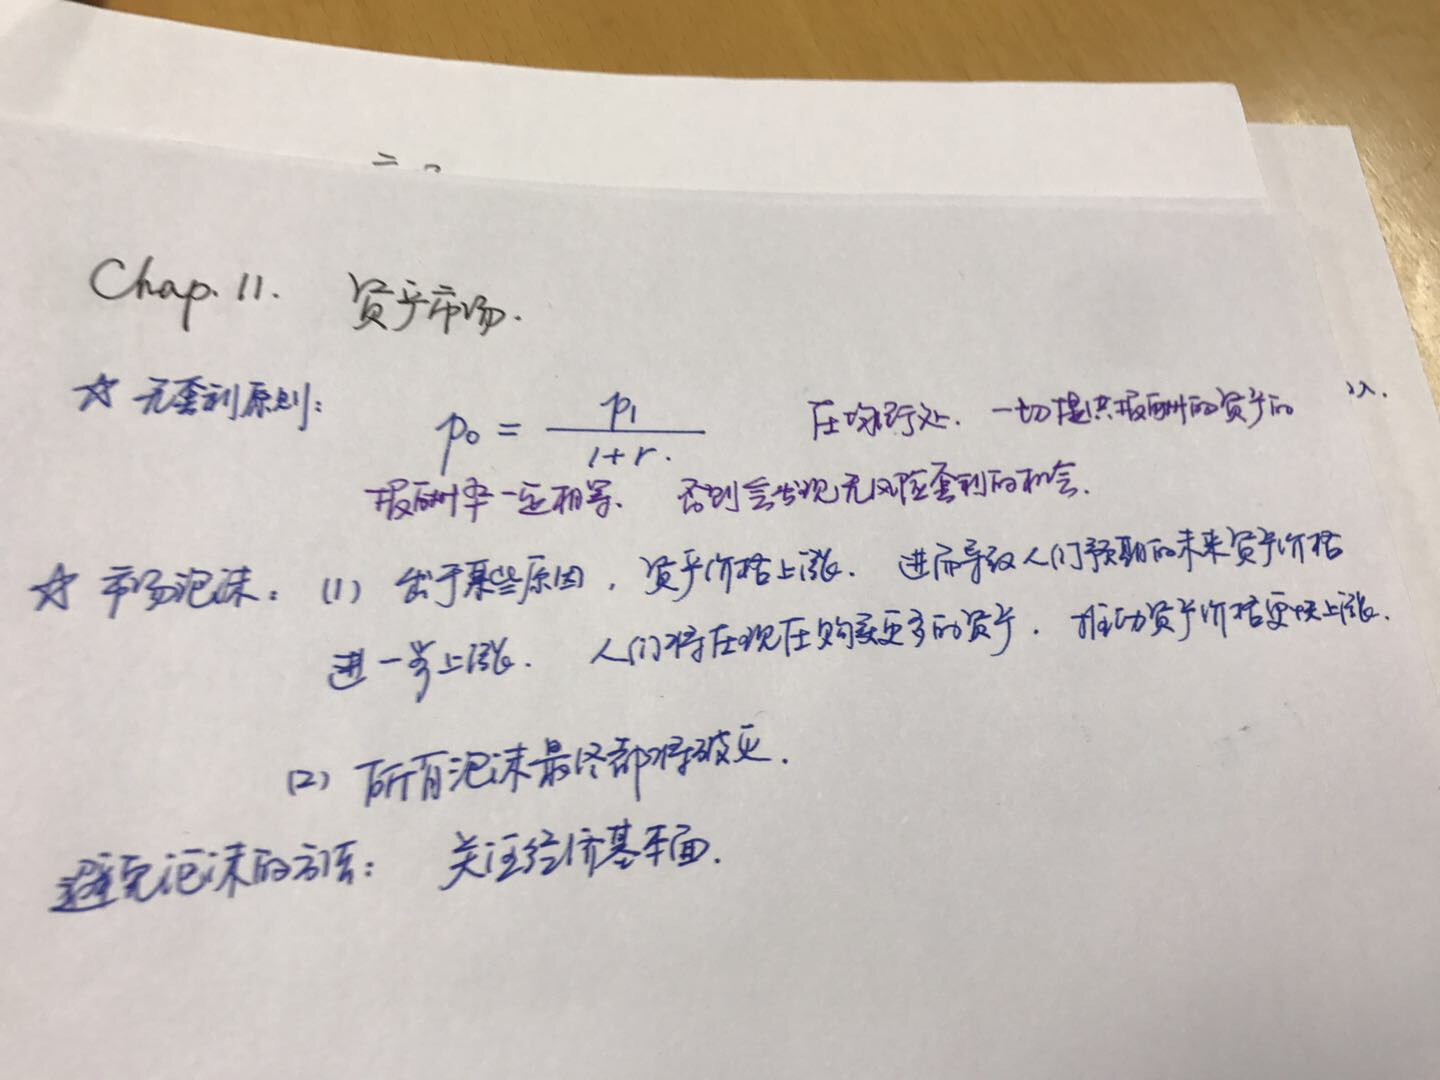 Chap. 11. 资产市场.
☆ 无套利原则: p₀ = p₁ / 1+r. 在均衡处, 一切提供报酬的资产的
报酬率一定相等. 否则会出现无风险套利的机会.
☆ 市场泡沫: (1) 出于某些原因, 资产价格上涨. 进而导致人们预期的未来资产价格
进一步上涨. 人们将在现在购买更多的资产. 推动资产价格更快上涨.
(2) 所有泡沫最终都将破灭.
避免泡沫的方法: 关注经济基本面.